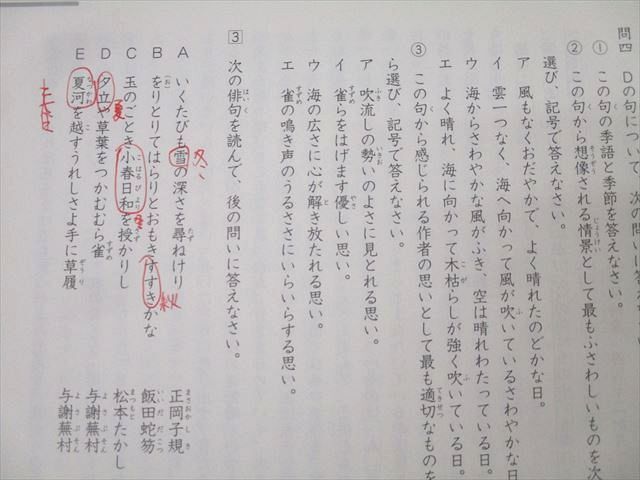 問四 Dの句について、次の問いに答
① この句の季語と季節を答えなさい。
② この句から想像される情景として最もふさわしいものを次
選び、記号で答えなさい。
ア 風もなくおだやかで、よく晴れたのどかな日。
イ 雲一つなく、海へ向かって風が吹いているさわやかな日
ウ 海からさわやかな風がふき、空は晴れわたっている日。
エ よく晴れ、海に向かって木枯らしが強く吹いている日。
③ この句から感じられる作者の思いとして最も適切なものを
ら選び、記号で答えなさい。
ア 吹流しの勢いのよさに見とれる思い。
イ 雀らをはげます優しい思い。
ウ 海の広さに心が解き放たれる思い。
エ 雀の鳴き声のうるささにいらいらする思い。
3 次の俳句を読んで、後の問いに答えなさい。
A いくたびも雪の深さを尋ねけり 正岡子規
冬
B をりとりてはらりとおもきすすきかな 飯田蛇笏
秋
C 玉のごとき小春日和を授かりし 松本たかし
冬
D 夕立や草葉をつかむむら雀 与謝蕪村
夏
E 夏河を越すうれしさよ手に草履 与謝蕪村